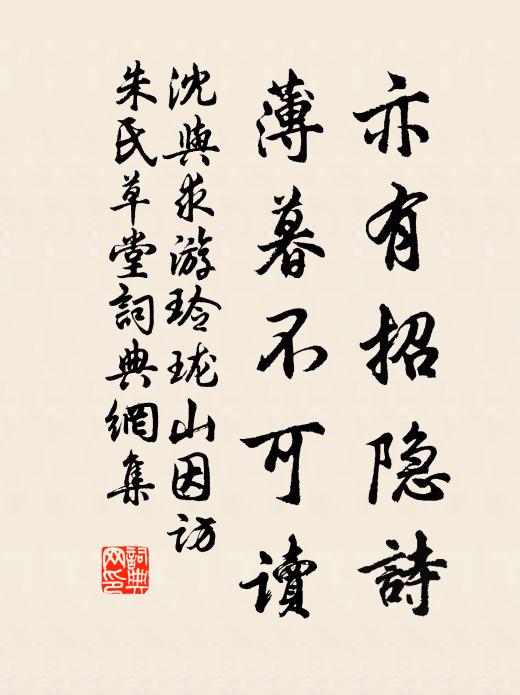 亦有招隐詩
薄暮不可读
沈與求游玲珑山因访
朱氏草堂詞典網集
詞典网印